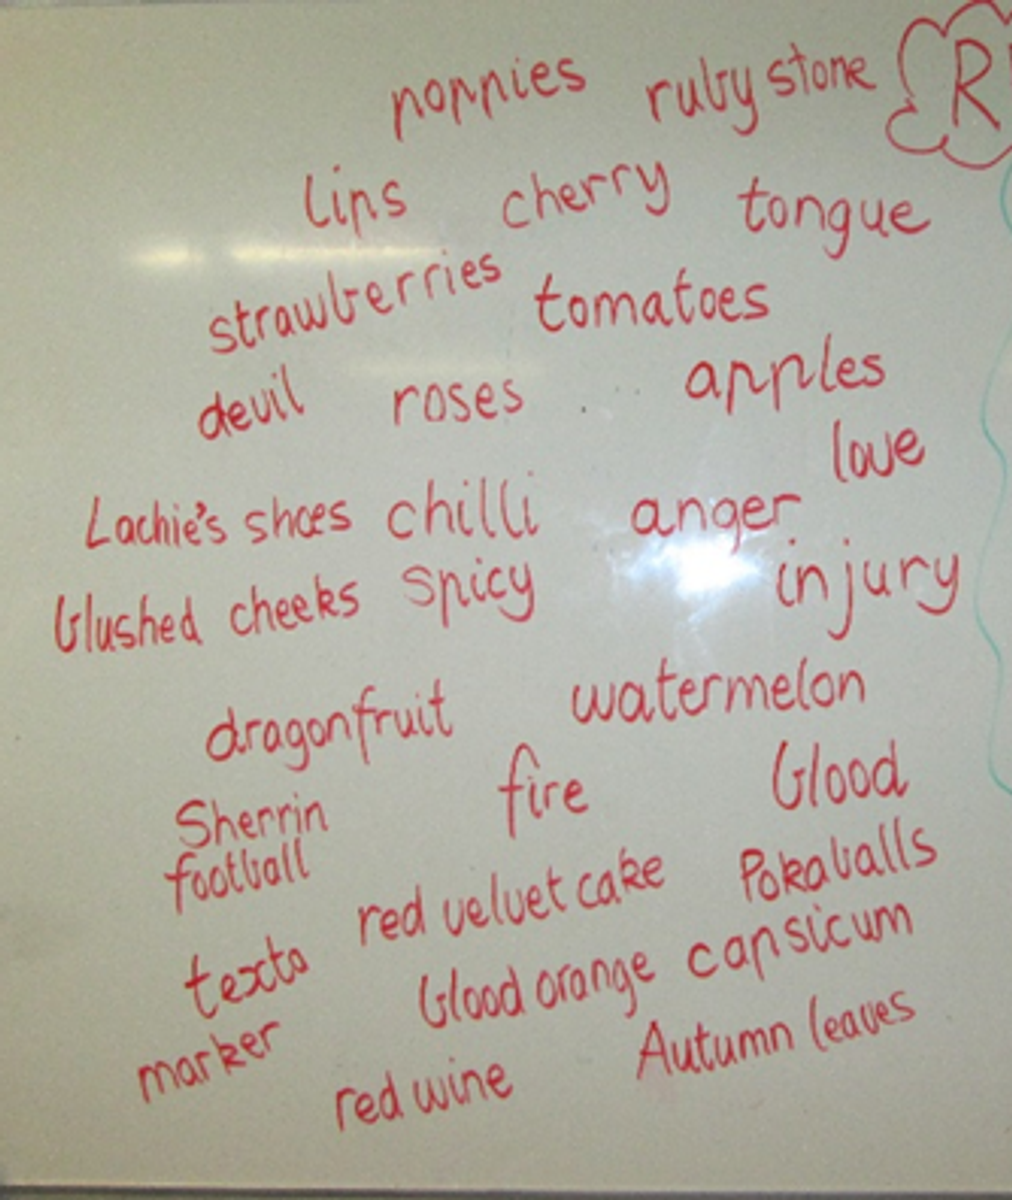 poppies ruby stone R
lips cherry tongue
strawberries tomatoes
devil roses apples
love
Lachie's shoes chilli anger
blushed cheeks spicy injury
dragonfruit watermelon
Sherrin fire blood
football
red velvet cake Pokaballs
texta blood orange capsicum
marker red wine Autumn leaves